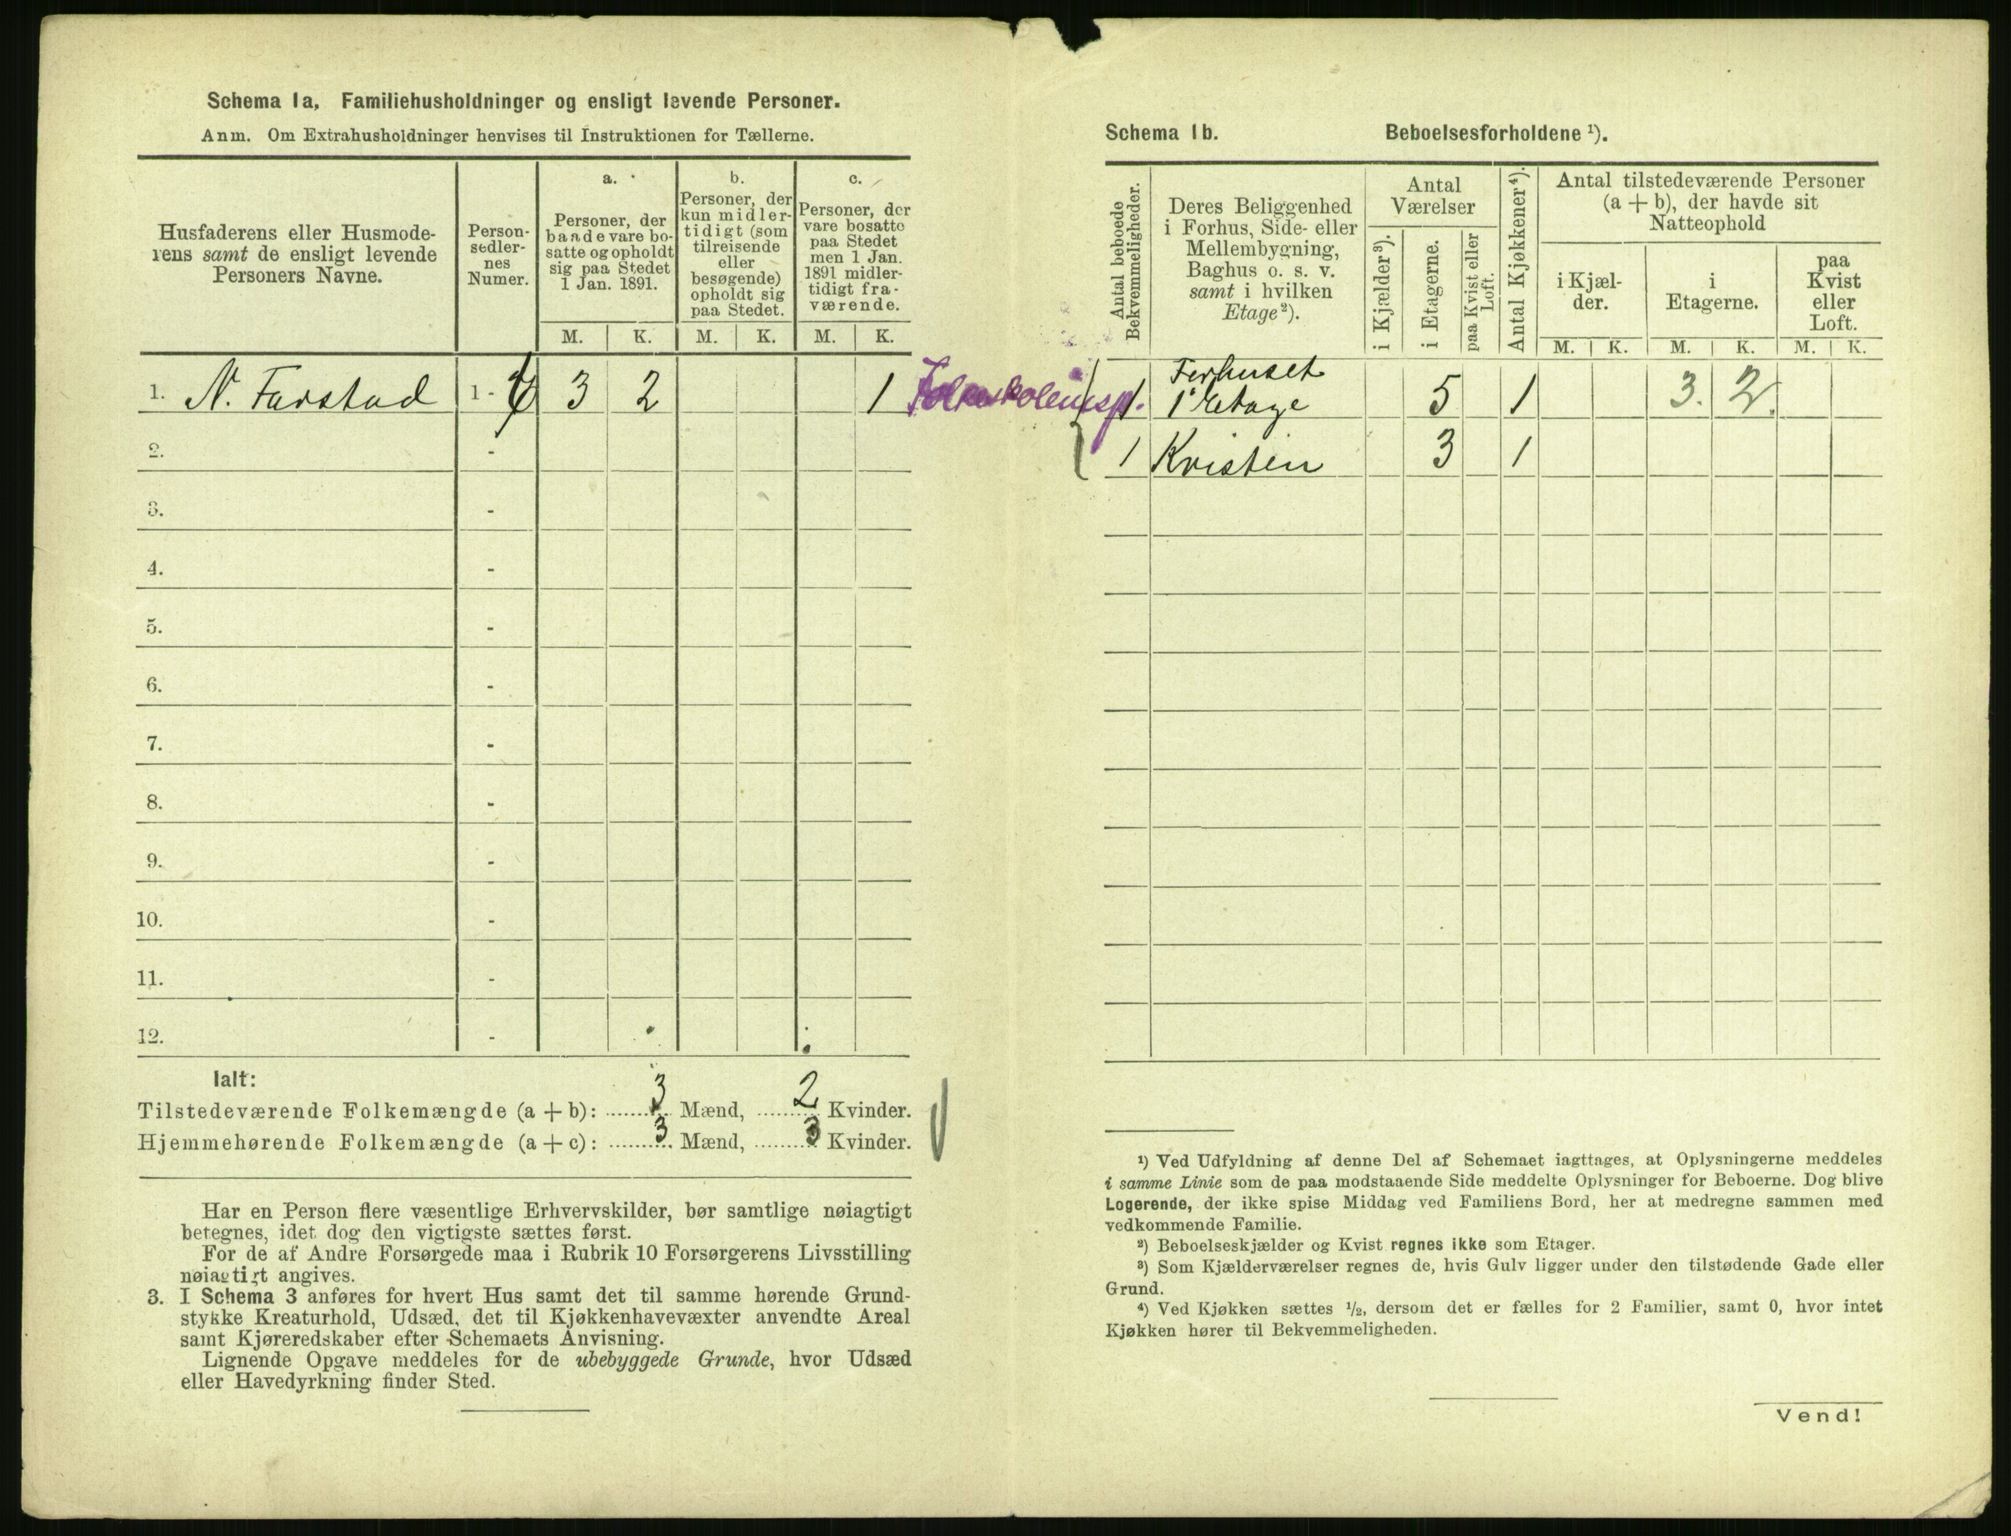 Schema 1a. Familiehusholdninger og ensligt levende Personer.
Anm. Om Extrahusholdninger henvises til Instruktionen for Tællerne.
Husfaderens eller Husmode-
rens samt de ensligt levende
Personers Navne.
Person-
sedler-
nes
Numer.
a.
Personer, der
baade vare bo-
satte og opholdt
sig paa Stedet
1 Jan. 1891.
b.
Personer, der
kun midler-
tidigt (som
tilreisende
eller
besøgende)
opholdt sig
paa Stedet.
c.
Personer, der
vare bosatte
paa Stedet
men 1 Jan.
1891 midler-
tidigt fra-
værende.
M. K. M. K. M. K.
1. N. Farstad 1 - 6 3 2 1 Folkeskoleinsp.
2. -
3. -
4. -
5. -
6. -
7. -
8. -
9. -
10. -
11. -
12. -
Ialt:
Tilstedeværende Folkemængde (a + b): 3 Mænd, 2 Kvinder.
Hjemmehørende Folkemængde (a + c): 3 Mænd, 3 Kvinder.
Har en Person flere væsentlige Erhvervskilder, bør samtlige nøiagtigt
betegnes, idet dog den vigtigste sættes først.
For de af Andre Forsørgede maa i Rubrik 10 Forsørgerens Livsstilling
nøiagtigt angives.
3. I Schema 3 anføres for hvert Hus samt det til samme hørende Grund-
stykke Kreaturhold, Udsæd, det til Kjøkkenhavevæxter anvendte Areal
samt Kjøreredskaber efter Schemaets Anvisning.
Lignende Opgave meddeles for de ubebyggede Grunde, hvor Udsæd
eller Havedyrkning finder Sted.
Schema 1b. Beboelsesforholdene ¹).
Antal beboede
Bekvemmeligheder.
Deres Beliggenhed
i Forhus, Side- eller
Mellembygning,
Baghus o. s. v.
samt i hvilken
Etage ²).
Antal
Værelser
i Kjælder ³).
i Etagerne.
paa Kvist eller
Loft.
Antal Kjøkkener ⁴).
Antal tilstedeværende Personer
(a + b), der havde sit
Natteophold
i Kjæl-
der.
i
Etagerne.
paa
Kvist
eller
Loft.
M. K. M. K. M. K.
1 Forhuset
1' Etage 5 1 3. 2.
1 Kvisten 3 1
¹) Ved Udfyldning af denne Del af Schemaet iagttages, at Oplysningerne meddeles
i samme Linie som de paa modstaaende Side meddelte Oplysninger for Beboerne. Dog blive
Logerende, der ikke spise Middag ved Familiens Bord, her at medregne sammen med
vedkommende Familie.
²) Beboelseskjælder og Kvist regnes ikke som Etager.
³) Som Kjælderværelser regnes de, hvis Gulv ligger under den tilstødende Gade eller
Grund.
⁴) Ved Kjøkken sættes ½, dersom det er fælles for 2 Familier, samt 0, hvor intet
Kjøkken hører til Bekvemmeligheden.
Vend!